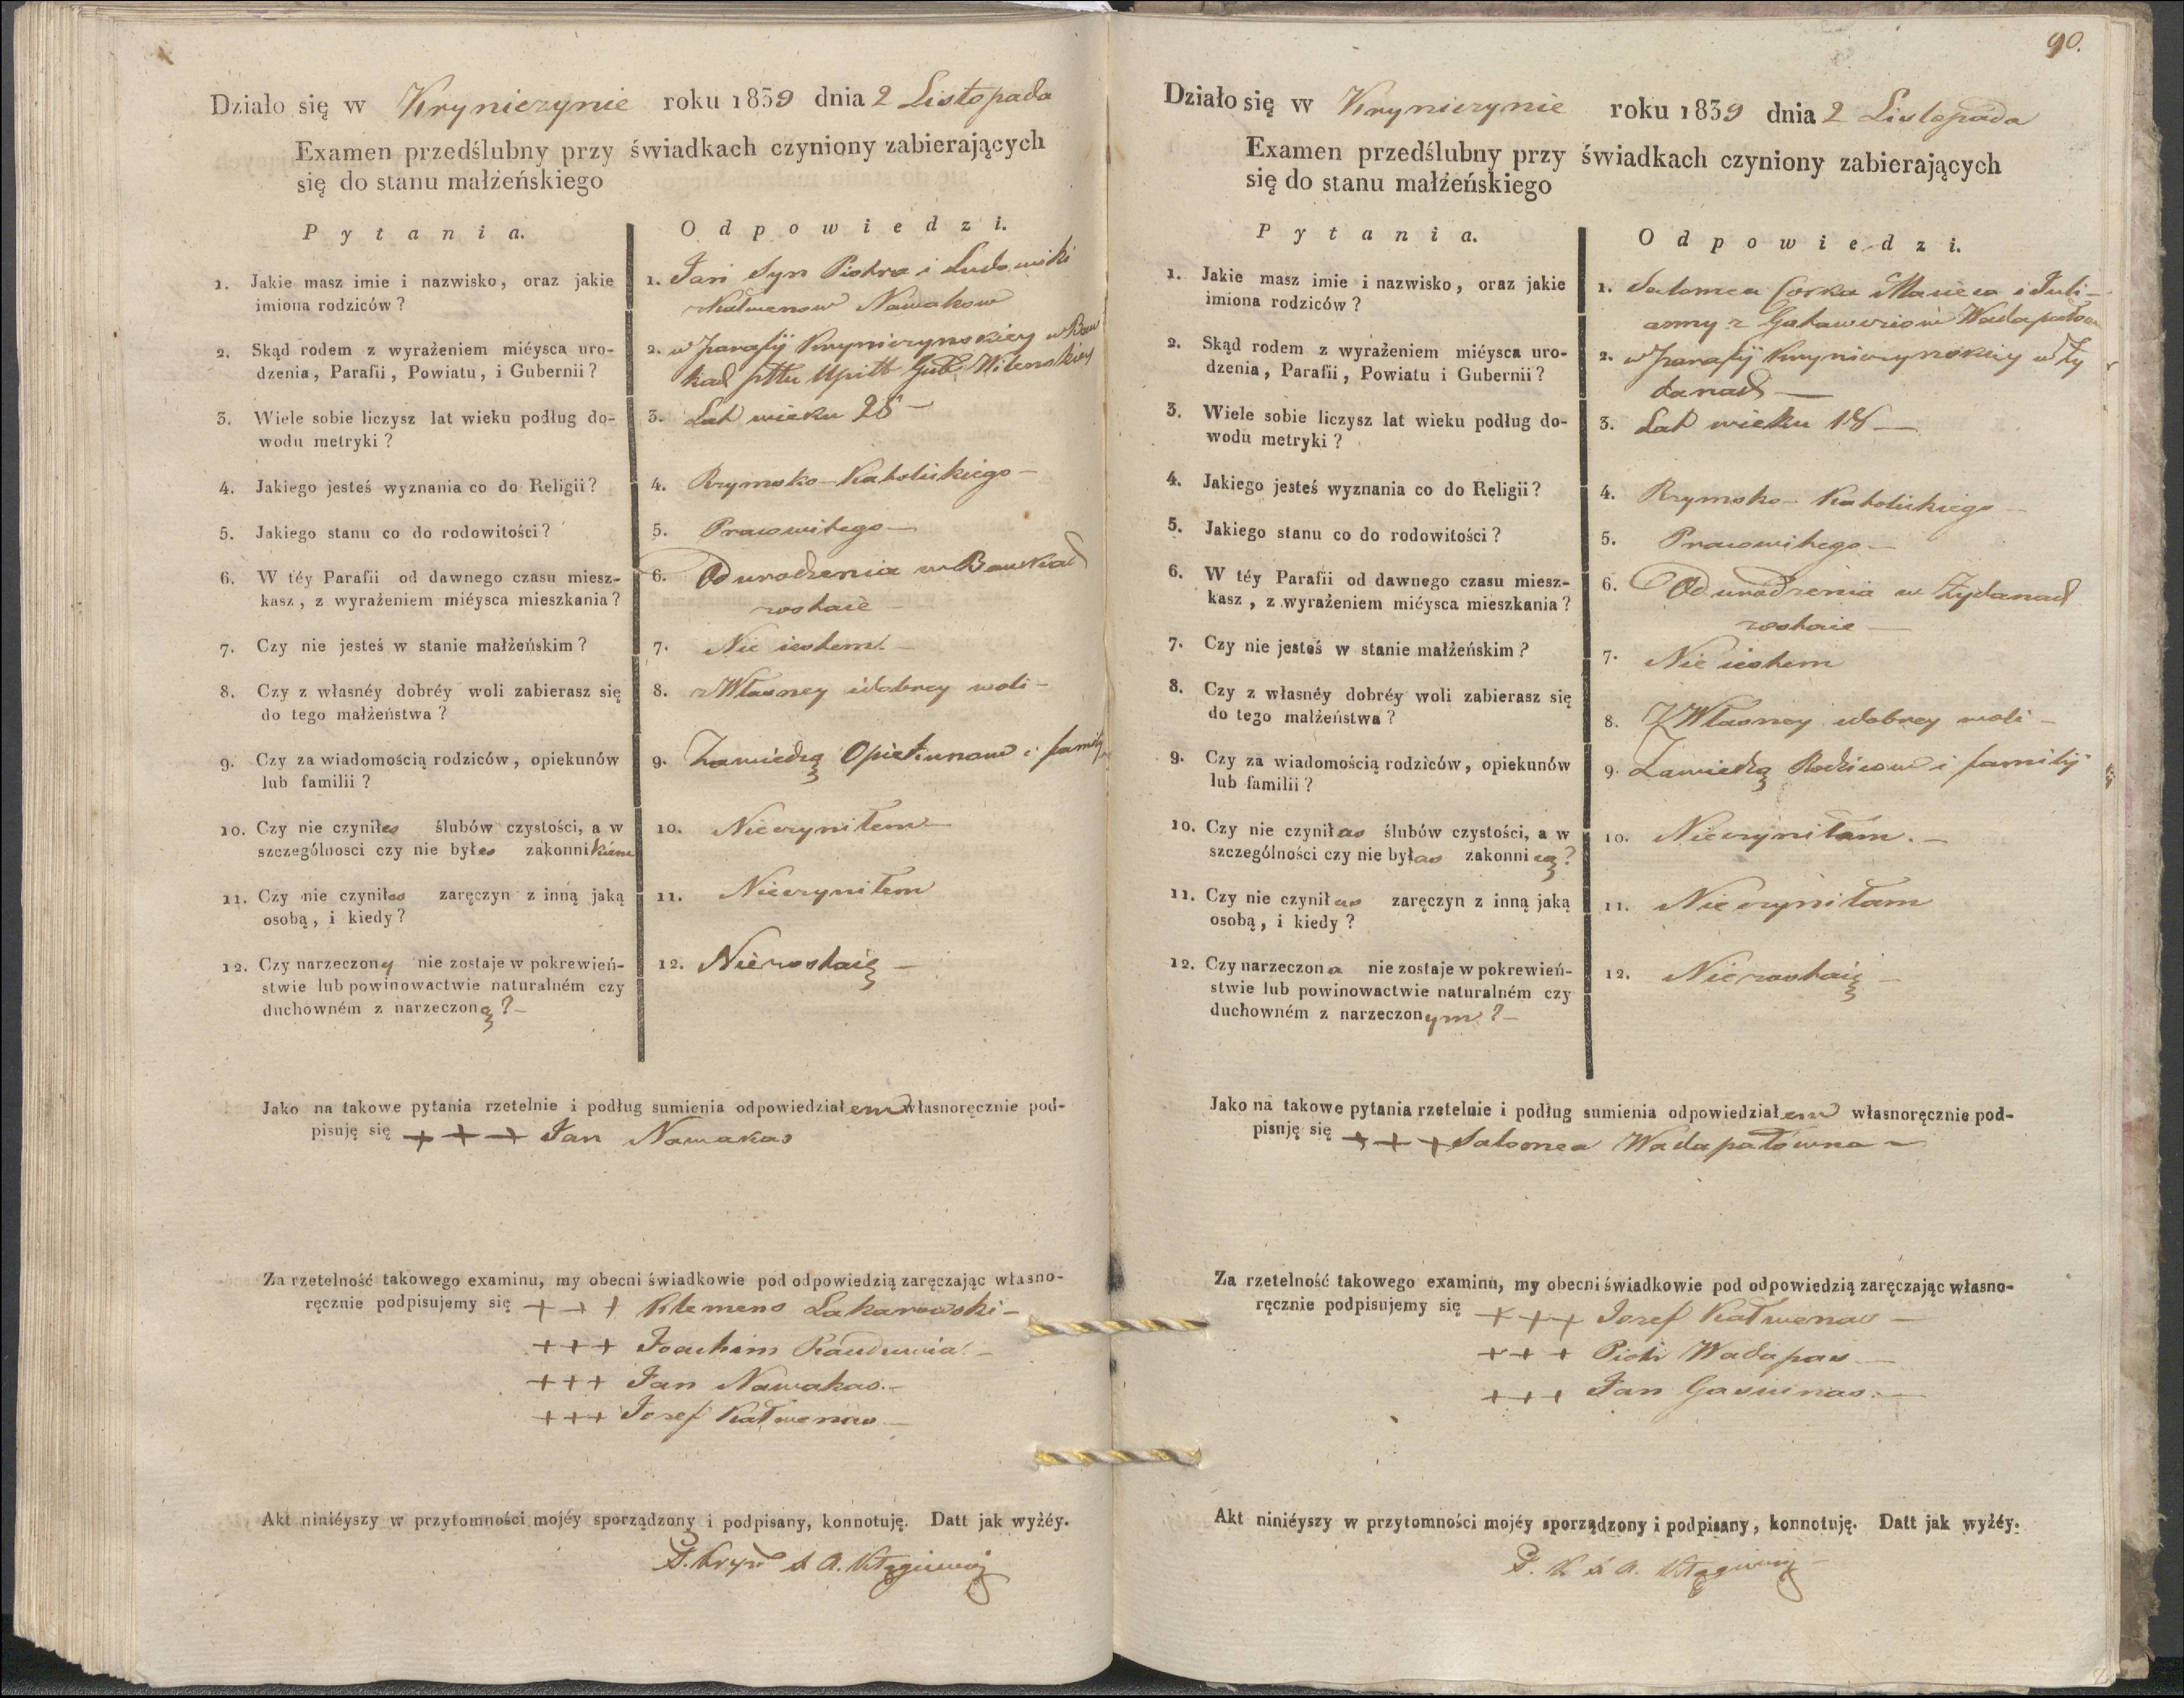 Działo się w Kryniczynie roku 1839 dnia 2 Listopada
Examen przedślubny przy świadkach czyniony zabierających
się do stanu małżeńskiego
Pytania.
Odpowiedzi.
1. Jakie masz imie i nazwisko, oraz jakie
imiona rodziców?
1. Jan Syn Piotra i Ludowiki
z Kałwenow Nawakow
2. Skąd rodem z wyrażeniem miéysca uro-
dzenia, Parafii, Powiatu, i Gubernii?
2. w parafij Kryniczynskiey w Baw
kach pttu Upitt Gub Wilenskiey
3. Wiele sobie liczysz lat wieku podług do-
wodu metryki?
3. Lat wieku 28 –
4. Jakiego jesteś wyznania co do Religii?
4. Rzymsko-Katolickiego –
5. Jakiego stanu co do rodowitości?
5. Pracowitego –
6. W téy Parafii od dawnego czasu miesz-
kasz, z wyrażeniem miéysca mieszkania?
6. Od urodzenia w Bawkach
zostaie –
7. Czy nie jesteś w stanie małżeńskim?
7. Nie iestem –
8. Czy z własnéy dobréy woli zabierasz się
do tego małżeństwa?
8. z Własney i dobrey woli –
9. Czy za wiadomością rodziców, opiekunów
lub familii?
9. Zawiedzą Opiekunow i familij
10. Czy nie czyniłes ślubów czystości, a w
szczególnosci czy nie byłes zakonnikiem
10. Nieczyniłem –
11. Czy nie czyniłes zaręczyn z inną jaką
osobą, i kiedy?
11. Nieczyniłem
12. Czy narzeczony nie zostaje w pokrewień-
stwie lub powinowactwie naturalném czy
duchowném z narzeczoną? –
12. Niezostaię –
Jako na takowe pytania rzetelnie i podług sumienia odpowiedziałem własnoręcznie pod-
pisuję się + + + Jan Nawakas
Za rzetelność takowego examinu, my obecni świadkowie pod odpowiedzią zaręczając własno-
ręcznie podpisujemy się + + + Klemens Lakarowski –
+++ Joachim
+++ Jan Nawakas. –
+++ Jozef Kałwenas –
Akt niniéyszy w przytomności mojéy sporządzony i podpisany, konnotuję. Datt jak wyżéy.
90.
Działo się w Kryniczynie roku 1839 dnia 2 Listopada
Examen przedślubny przy świadkach czyniony zabierających
się do stanu małżeńskiego
Pytania.
Odpowiedzi.
1. Jakie masz imie i nazwisko, oraz jakie
imiona rodziców?
1. Salomea Corka Macieia i Juli-
anny z Wadapałow
2. Skąd rodem z wyrażeniem miéysca uro-
dzenia, Parafii, Powiatu i Gubernii?
2. w parafij Kryniczynskiey w Ży
danach –
3. Wiele sobie liczysz lat wieku podług do-
wodu metryki?
3. Lat wieku 18 –
4. Jakiego jesteś wyznania co do Religii?
4. Rzymsko-Katolickiego –
5. Jakiego stanu co do rodowitości?
5. Pracowitego –
6. W téy Parafii od dawnego czasu miesz-
kasz, z wyrażeniem miéysca mieszkania?
6. Od urodzenia w Żydanach
zostaie –
7. Czy nie jesteś w stanie małżeńskim?
7. Nie iestem
8. Czy z własnéy dobréy woli zabierasz się
do tego małżeństwa?
8. Z Własney i dobrey woli –
9. Czy za wiadomością rodziców, opiekunów
lub familii?
9. Zawiedzą Rodzicow i familij
10. Czy nie czyniłas ślubów czystości, a w
szczególności czy nie byłas zakonnicą?
10. Nieczyniłam. –
11. Czy nie czyniłas zaręczyn z inną jaką
osobą, i kiedy?
11. Nieczyniłam
12. Czy narzeczona nie zostaje w pokrewień-
stwie lub powinowactwie naturalném czy
duchowném z narzeczonym? –
12. Niezostaię –
Jako na takowe pytania rzetelnie i podług sumienia odpowiedziałem własnoręcznie pod-
pisuję się + + + Salomea Wadapałowna –
Za rzetelność takowego examinu, my obecni świadkowie pod odpowiedzią zaręczając własno-
ręcznie podpisujemy się + + + Jozef Kałwenas –
+ + + Piotr Wadapas –
+ + + Jan Gasiunas. –
Akt niniéyszy w przytomności mojéy sporządzony i podpisany, konnotuję. Datt jak wyżéy.